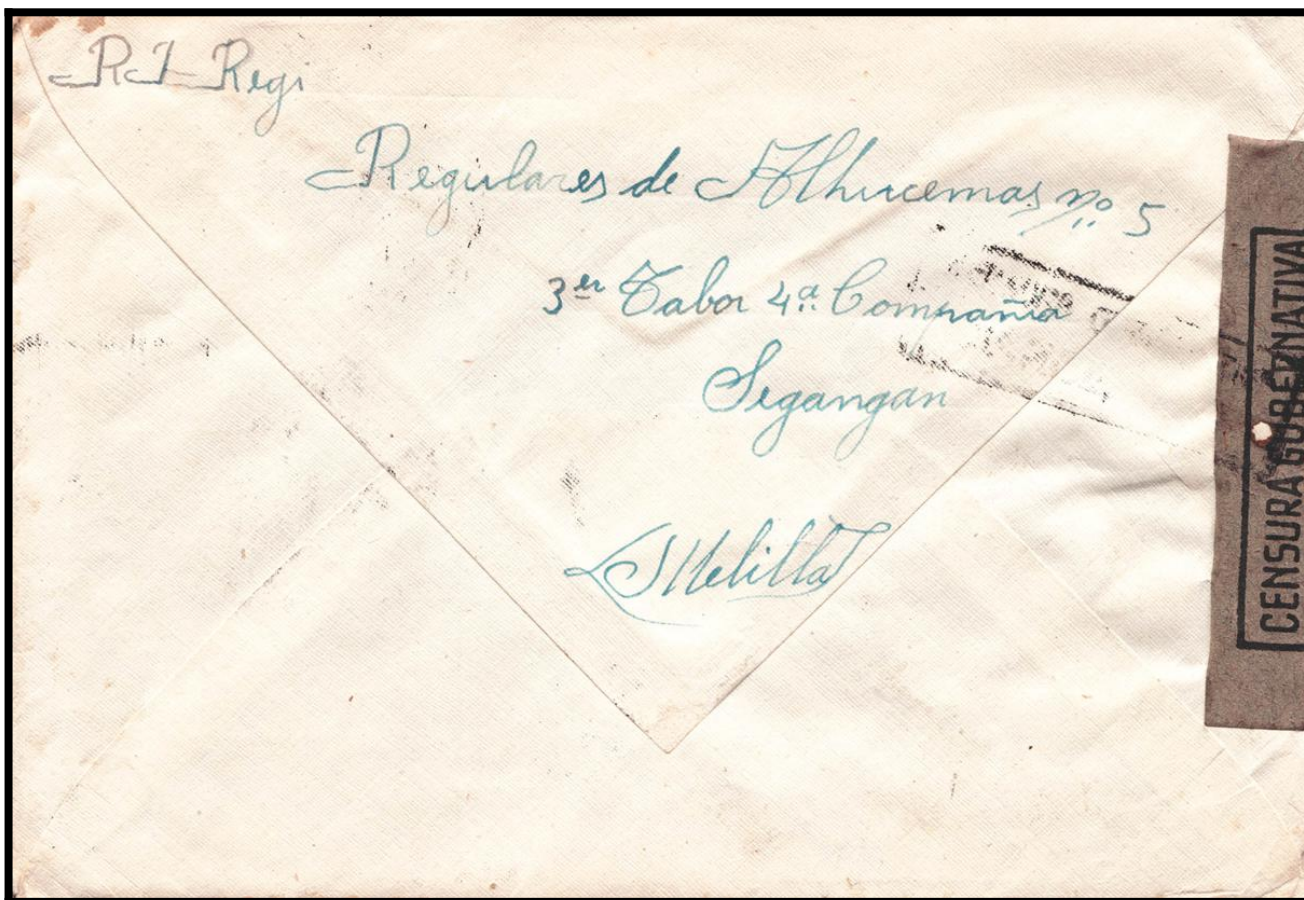 R. I. Regi
Regulares de Alhucemas nº 5
3er Tabor 4ª Compañia
Segangan
Melilla
CENSURA GUBERNATIVA